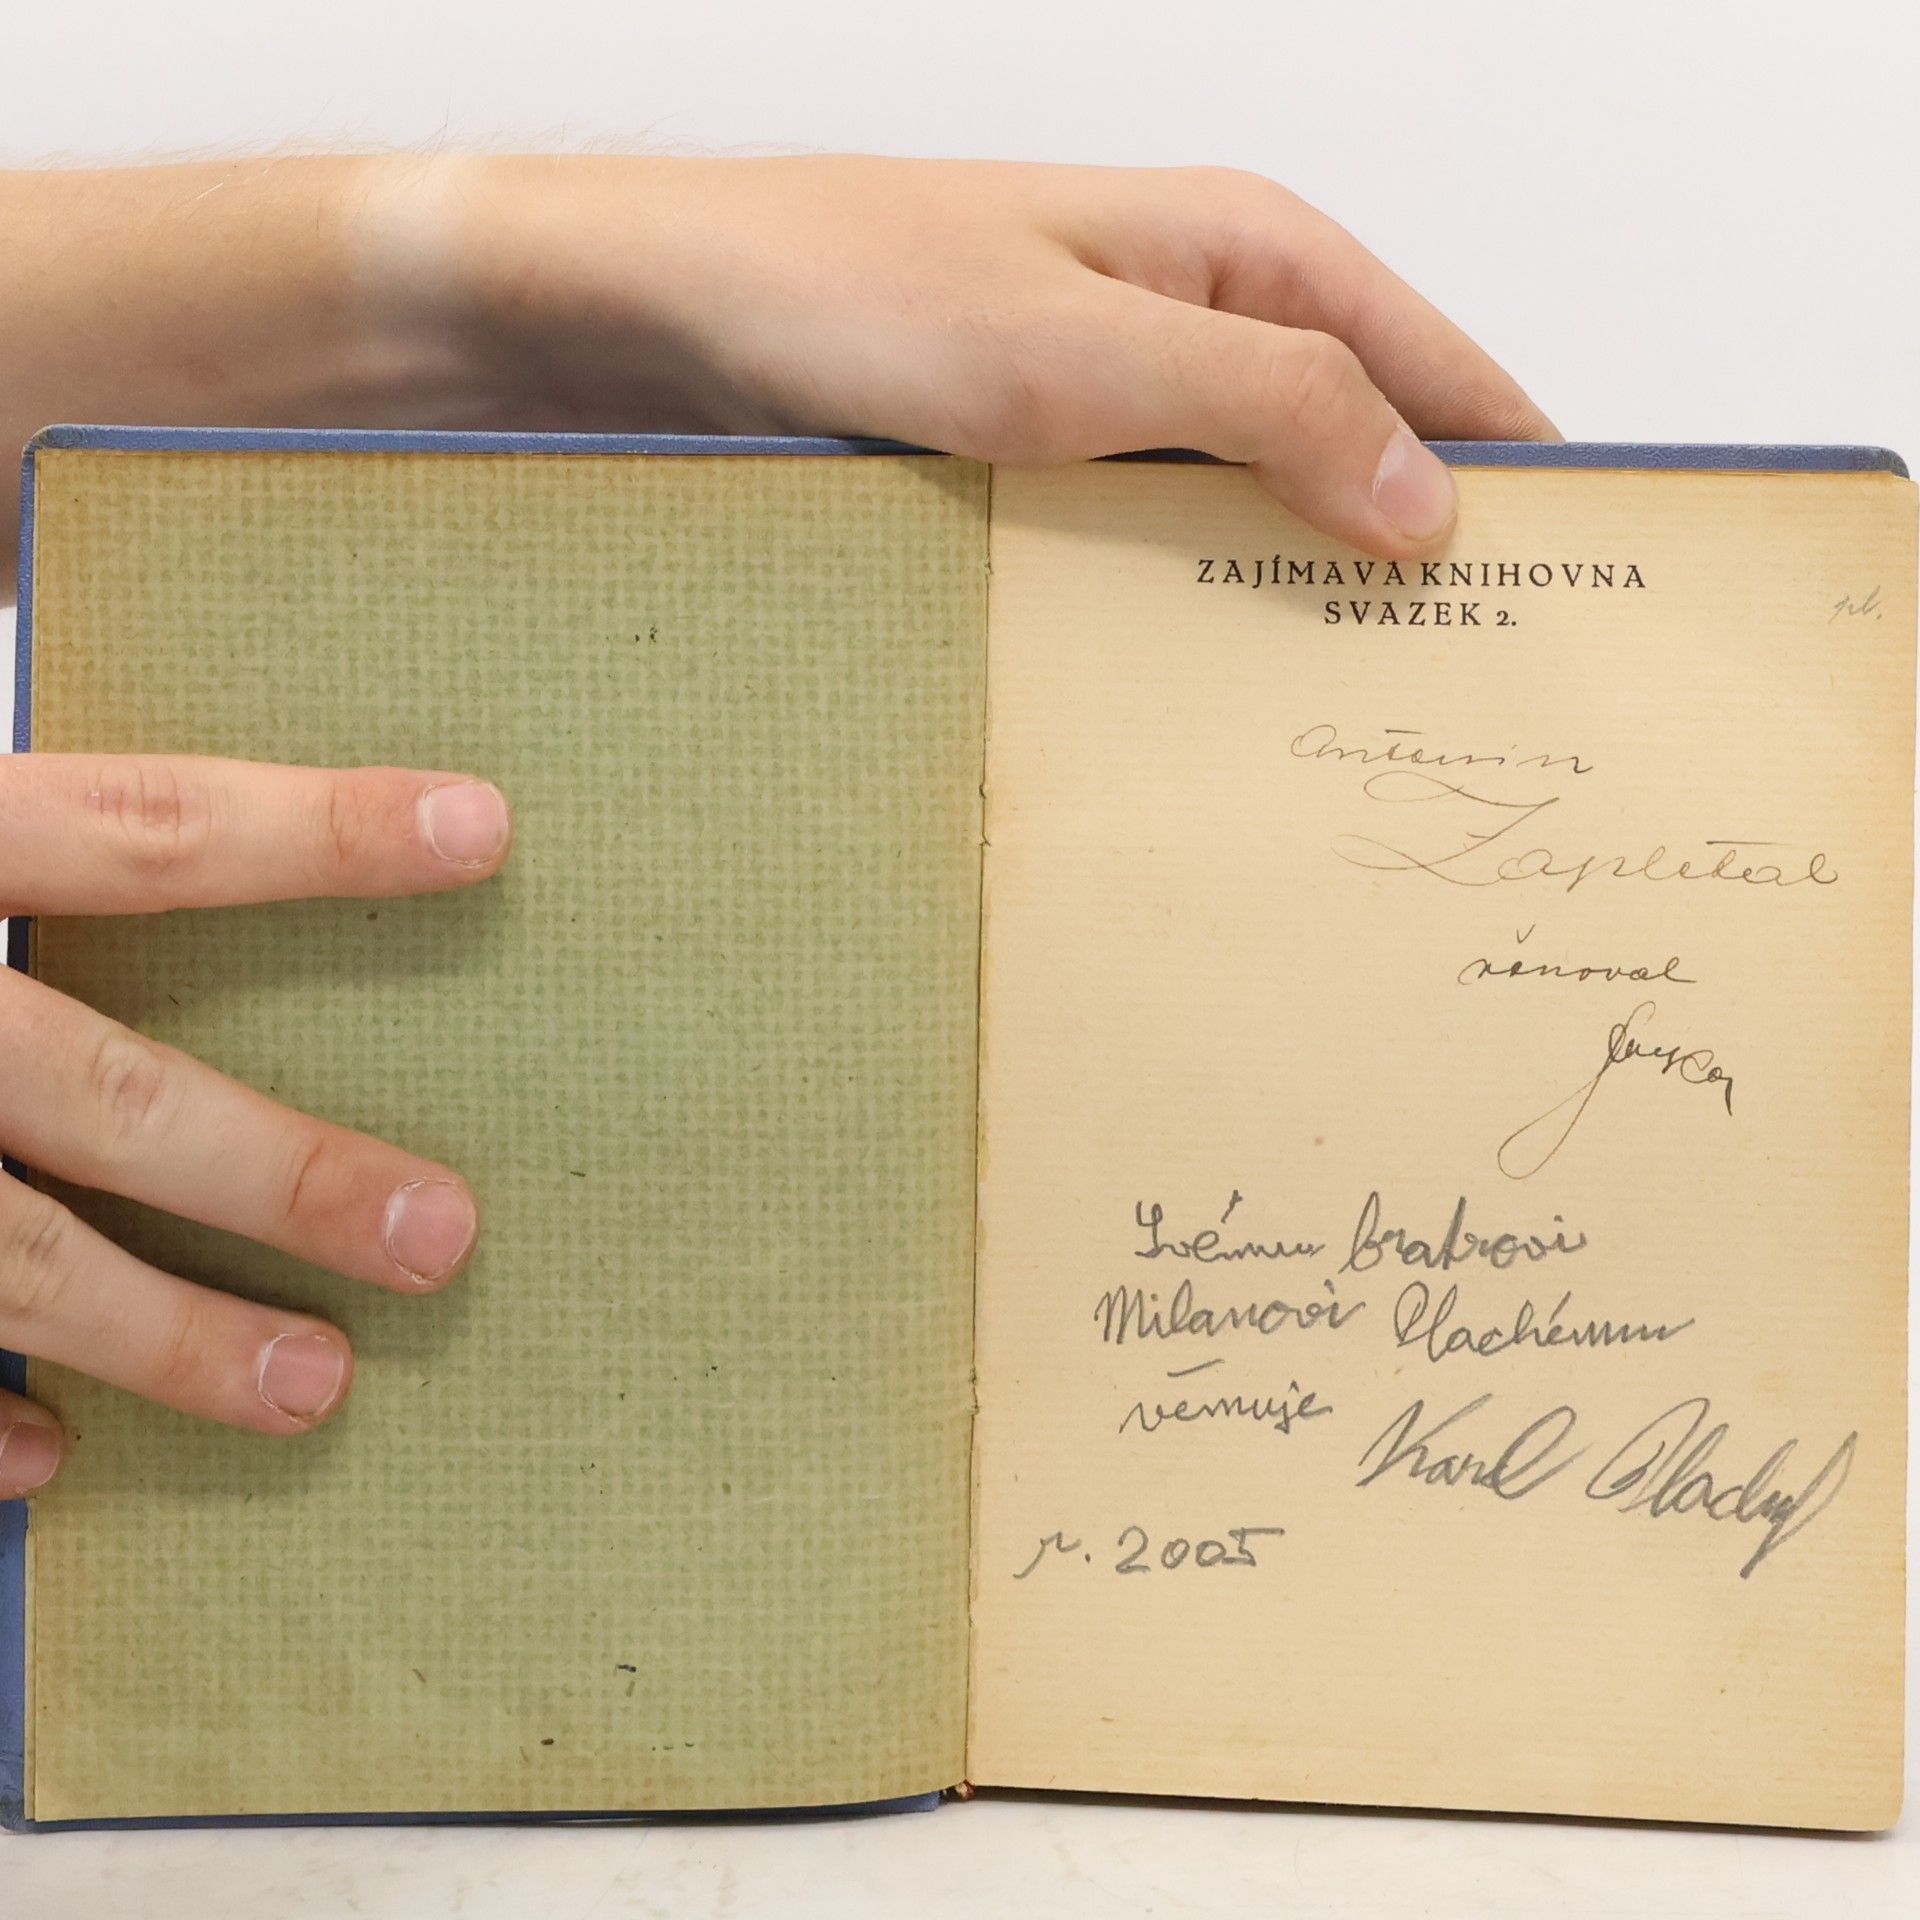 ZAJÍMAVA KNIHOVNA
SVAZEK 2.
Antonín
Zapletal
věnoval
Svému bratrovi
Milanovi Plachému
věnuje
Karel Plachý
r. 2005